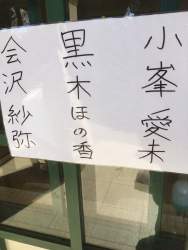 小峯愛未
黒木ほの香
会沢紗弥